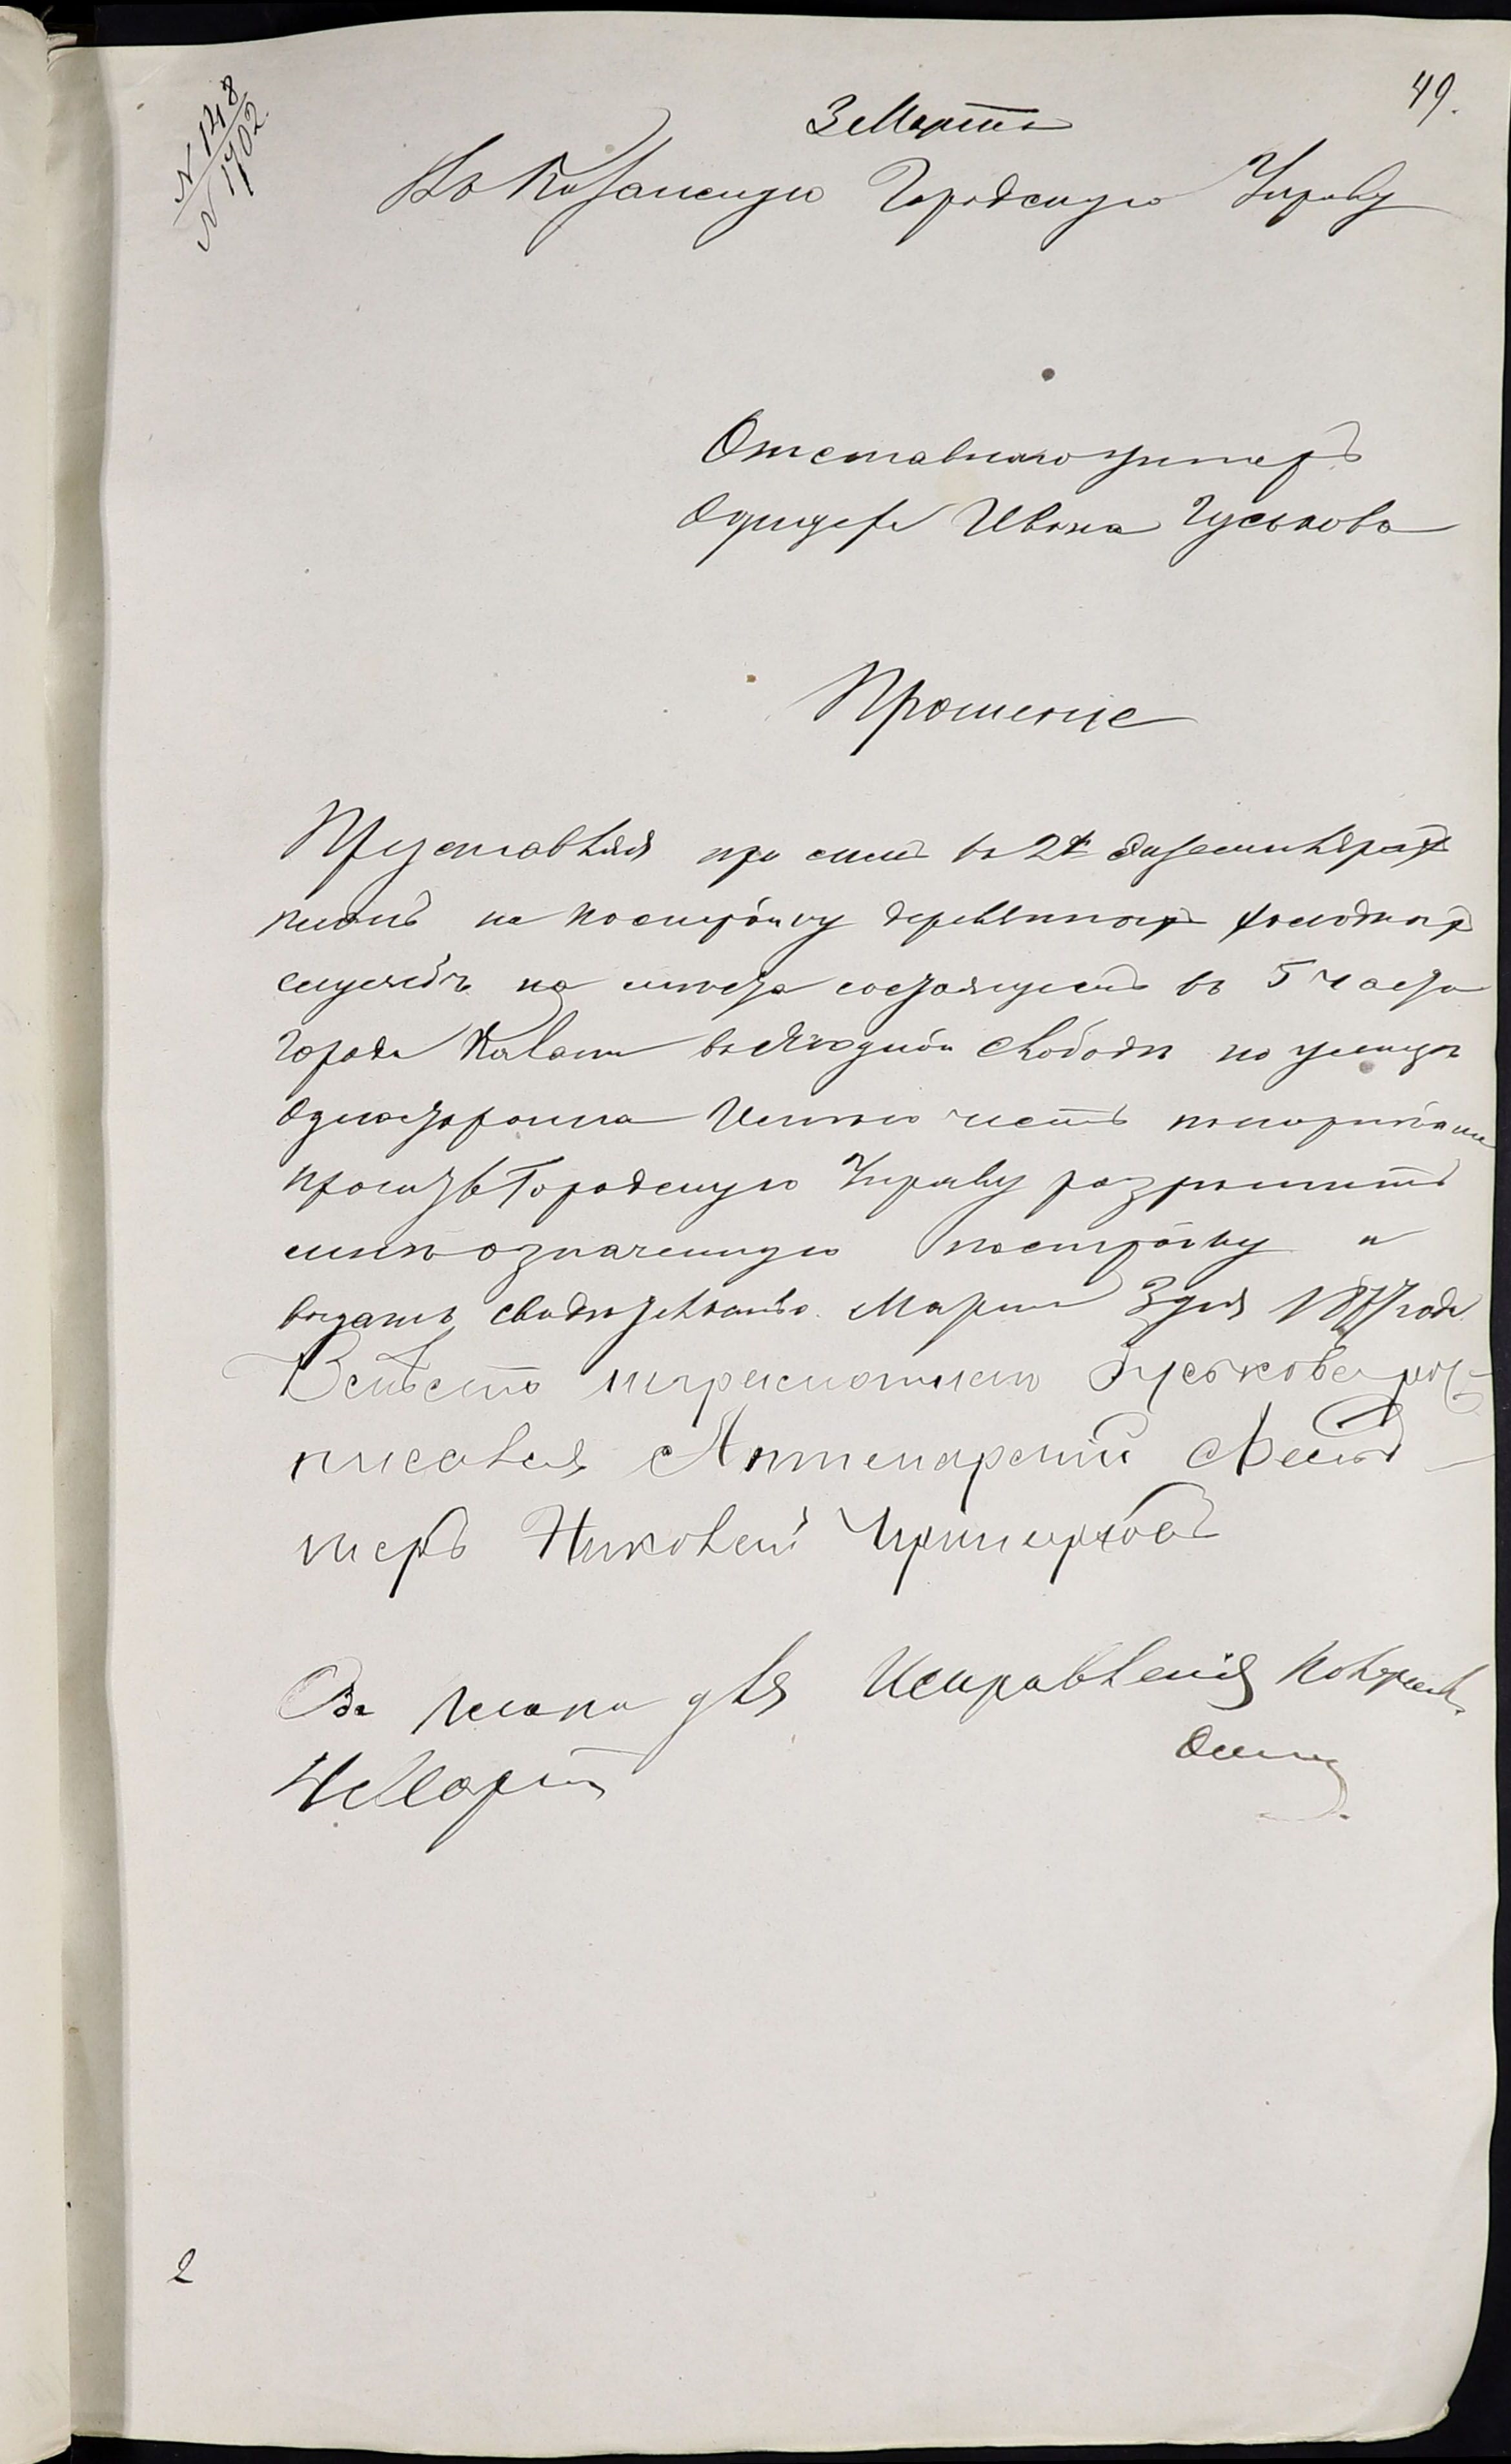 49.
N 148
N 1702
3 Марта
Въ Казанскую Городскую Управу
Отставного унтеръ
Офицера Ивана Гуськова
Прошение
Представляя при семъ въ 2хъ экземплярахъ
планъ на постройку деревянныхъ холодныхъ
службъ на место состоящемъ въ 5 части
города Казани въ Ягодной слободе по улице
Односторонка Имею честь покорнейше
просить Городскую Управу разрешить
мне означенную постройку и
выдать свидетельство. Марта 3 дня 1877 года
Вместо неграмотнаго Гуськова рос-
писался Аптекарский Фельд-
шеръ Николай
Два плана для Исправления получилъ
4 Марта
2